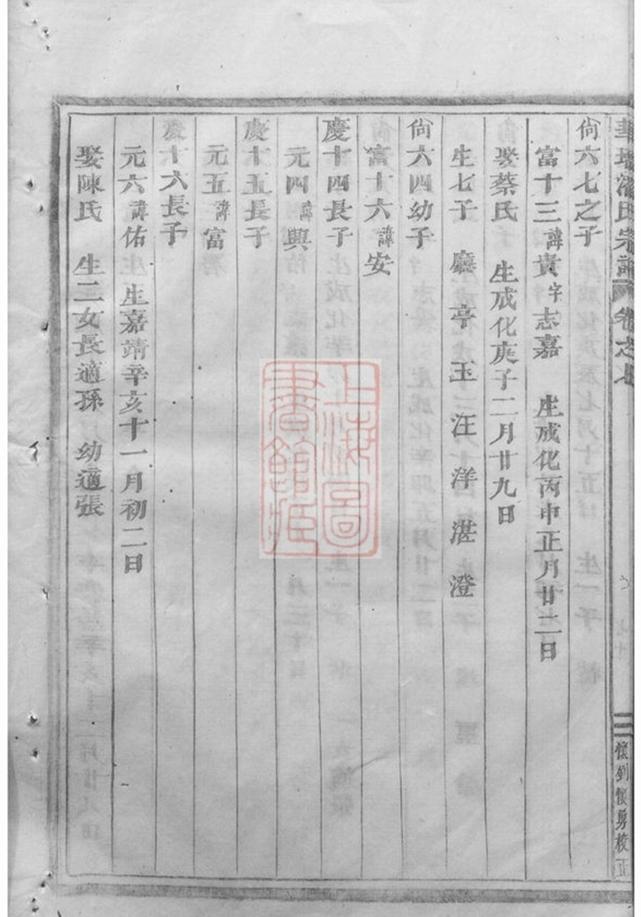 尙六七之子
富十三諱貴字志嘉 生成化丙申正月廿二日
娶蔡氏 生成化庚子二月廿九日
生七子 廳亭玉汪洋湛澄
尙六四幼子
富十六諱安
慶十四長子
元四諱興
慶十五長子
元五諱富
慶十六長子
元六諱佑 生嘉靖辛亥十一月初二日
娶陳氏 生二女長適孫 幼適張
氏宗譜 卷之七
懷釗懷勇校正
上海圖書館藏